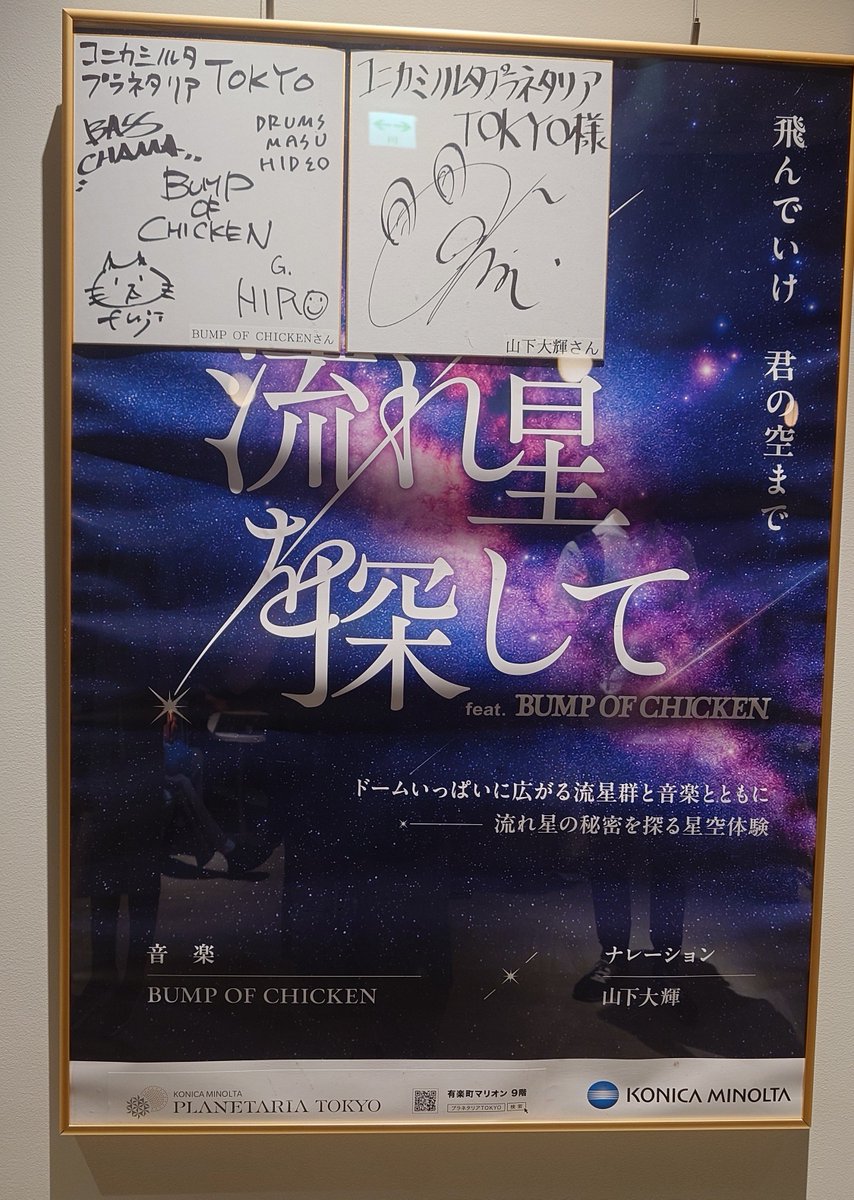 コニカミノルタ
プラネタリア TOKYO
BASS
CHAMA
DRUMS
MASU
HIDEO
BUMP
OF
CHICKEN
G.
HIRO
fuji
BUMP OF CHICKENさん
コニカミノルタプラネタリア
TOKYO様
山下大輝さん
飛んでいけ 君の空まで
流れ星
を探して
feat. BUMP OF CHICKEN
ドームいっぱいに広がる流星群と音楽とともに
流れ星の秘密を探る星空体験
音楽
BUMP OF CHICKEN
ナレーション
山下大輝
KONICA MINOLTA
PLANETARIA TOKYO
有楽町マリオン 9階
プラネタリアTOKYO 検索
KONICA MINOLTA